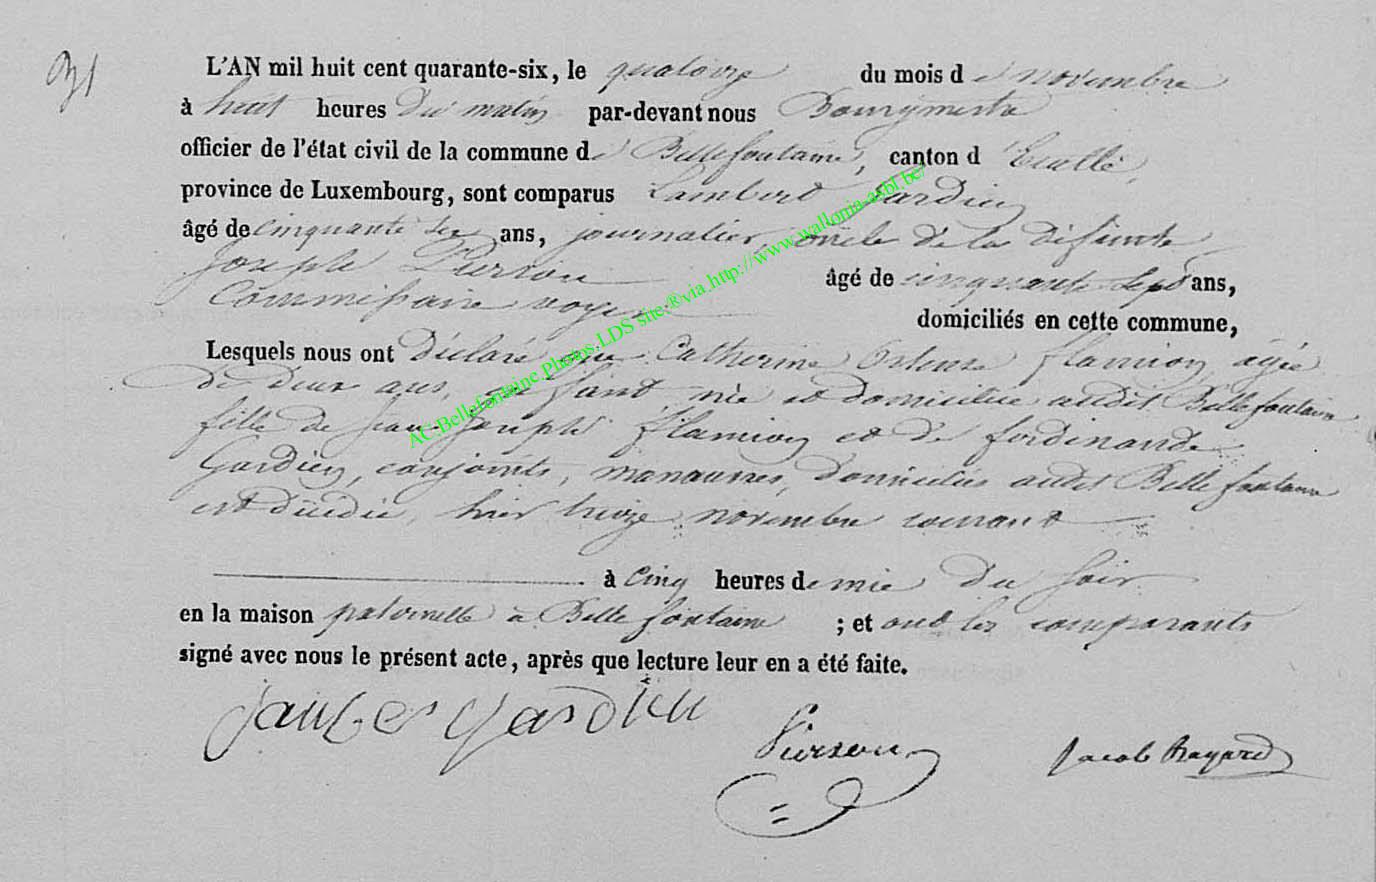 31
L'AN mil huit cent quarante-six, le quatorze du mois de novembre
à huit heures du matin par-devant nous Bourgmestre
officier de l'état civil de la commune de Bellefontaine, canton d'Etalle,
province de Luxembourg, sont comparus Lambert Gardien
âgé de cinquante six ans, journalier, oncle de la défunte
Joseph Pierson âgé de cinquante sept ans,
Commissaire voyer domiciliés en cette commune,
Lesquels nous ont déclaré que Catherine Flamion, âgée
de deux ans, enfant, née et domiciliée audit Bellefontaine
fille de Jean Joseph Flamion et de ferdinande
Gardien, conjoints, manœuvres, domiciliés audit Bellefontaine
est décédée, hier treize novembre courant
à cinq heures demie du soir
en la maison paternelle à Bellefontaine ; et ont les comparants
signé avec nous le présent acte, après que lecture leur en a été faite.
gardien
Pierson
Jacob
AC.Bellefontaine.Photos.LDS site.®via.http://www.wallonia-asbl.be/